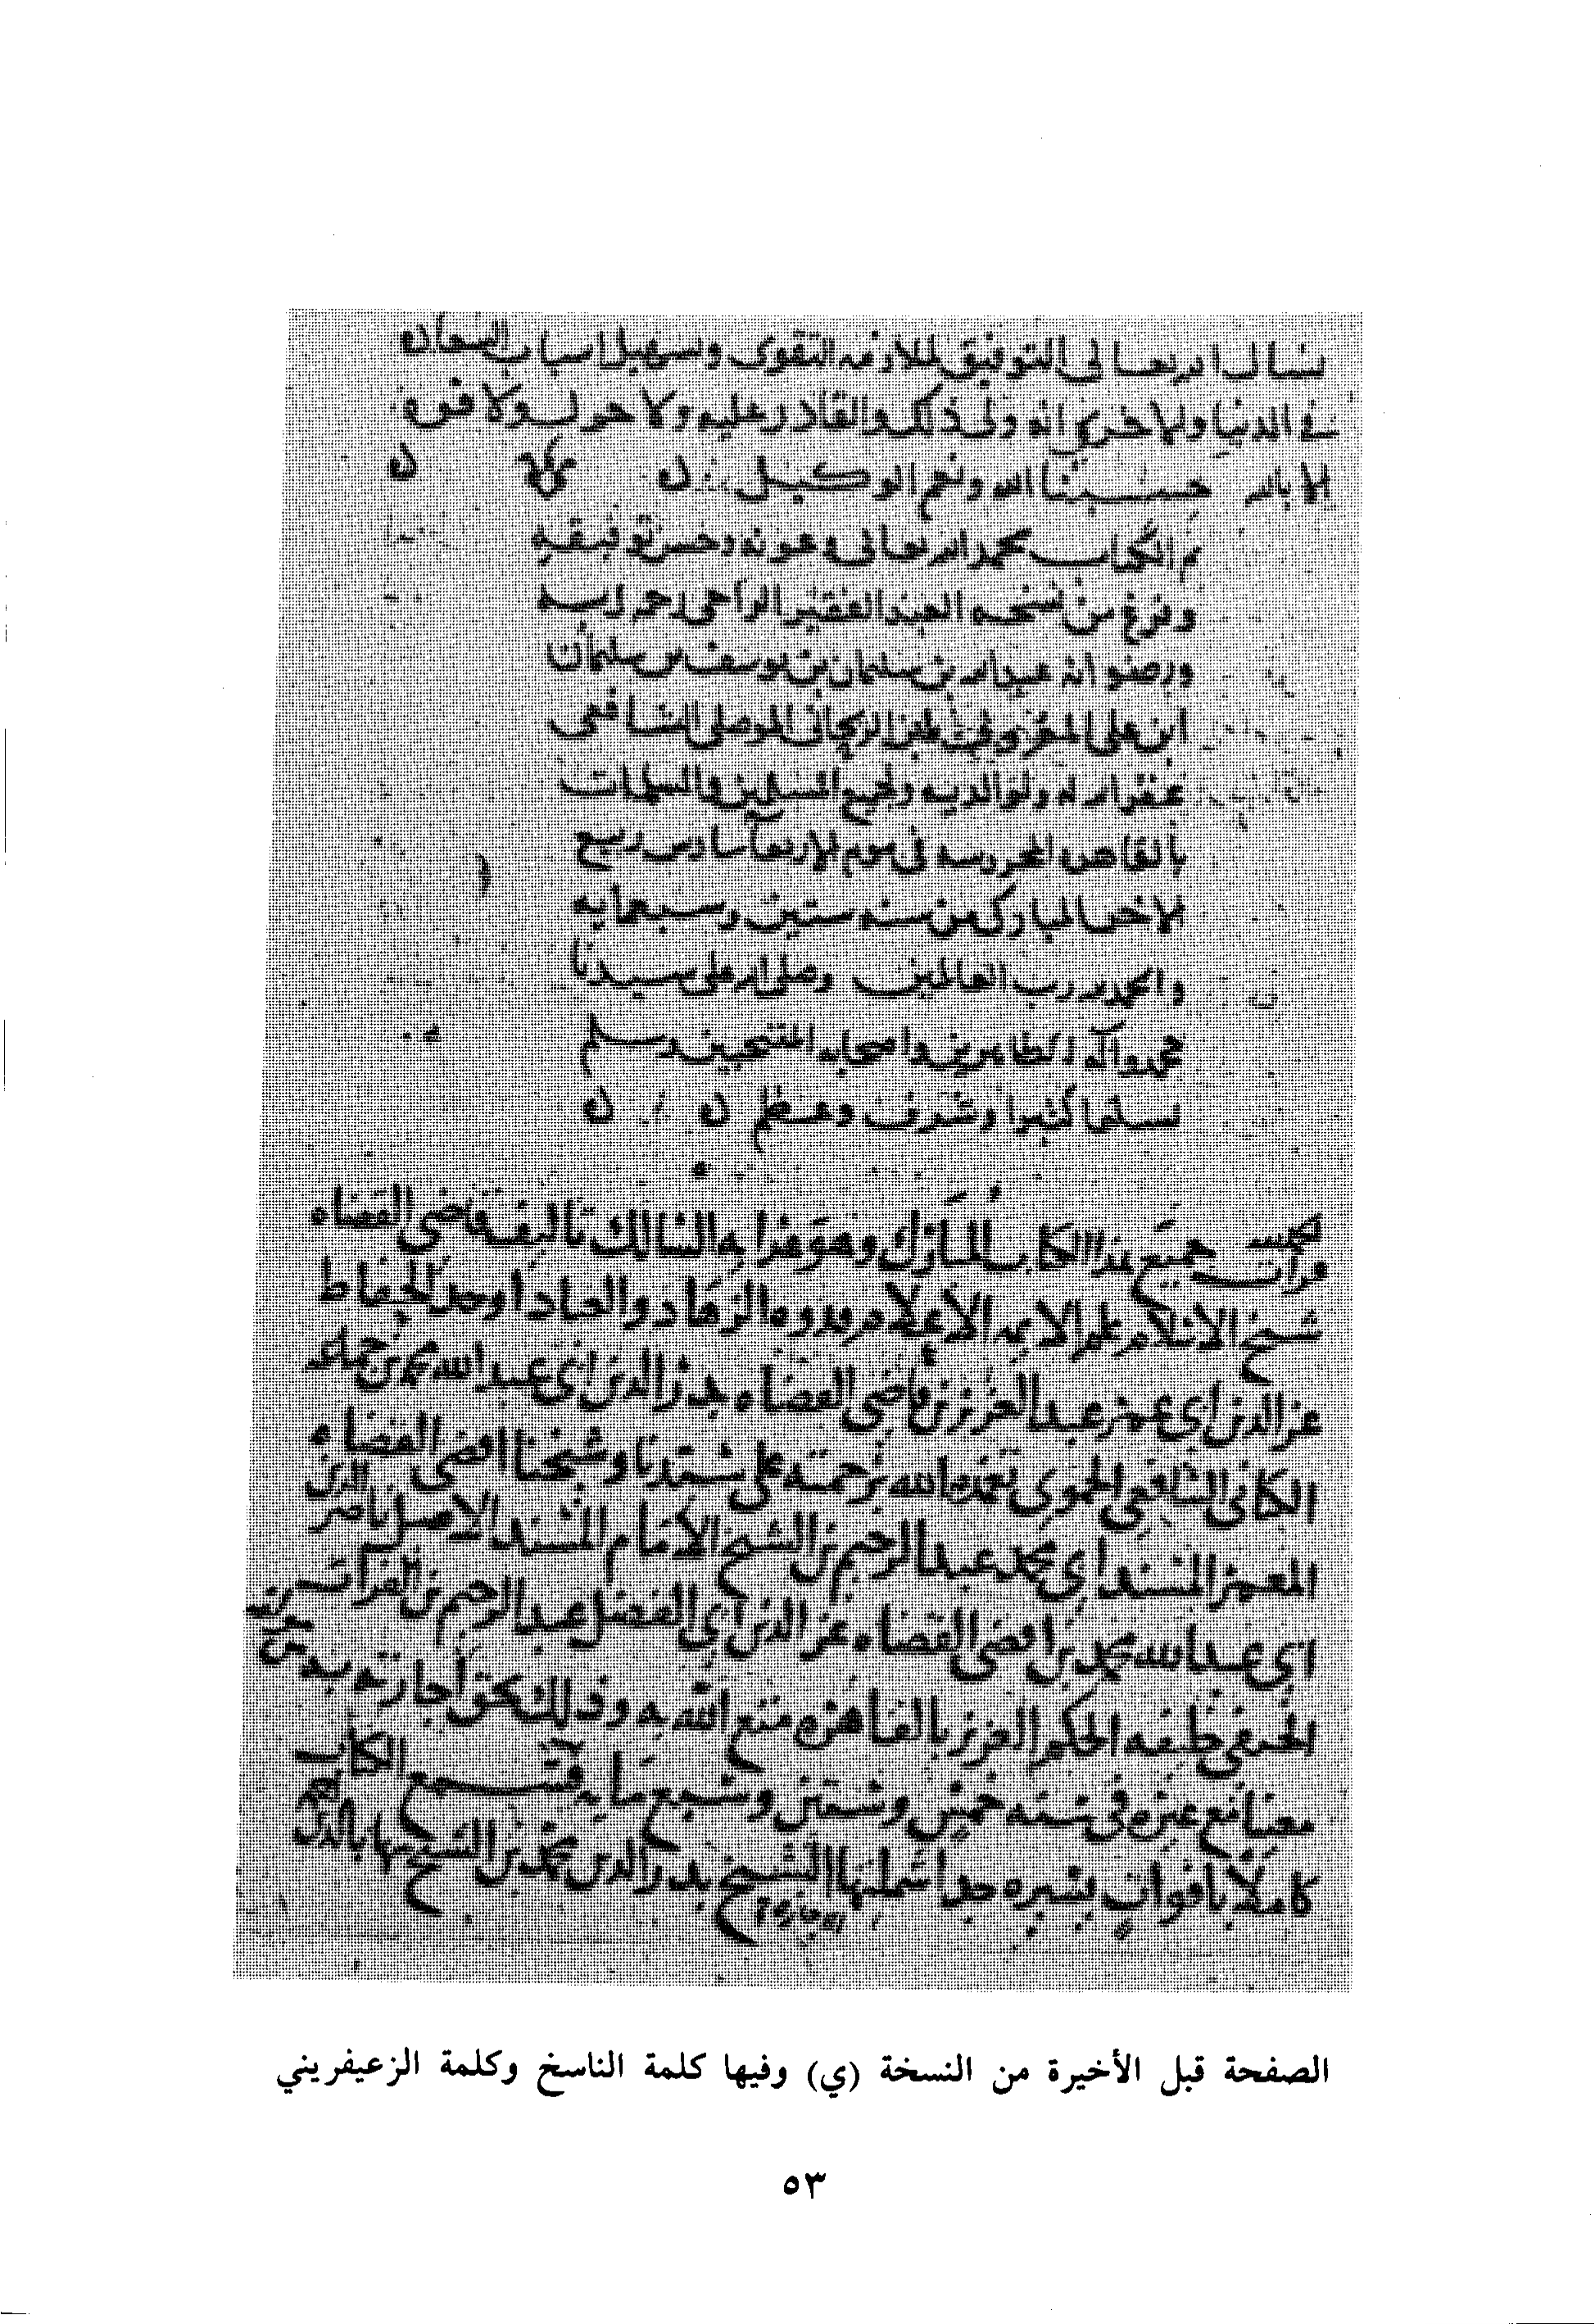 نسال الله تعالى التوفيق لملازمه التقوى وتسهيل اسباب السعاده
في الدنيا والاخرى انه ولى ذلك والقادر عليه ولا حول ولا قوه
الا بالله حسبنا الله ونعم الوكيل
تم الكتاب بحمد الله تعالى وعونه وحسن توفيقه
وفرغ من نسخه العبد الفقير الراجى رحمه ربه
ورضوانه عبد الله بن سلمان بن يوسف بن سلمان
ابن على الموصلى الشافعى
غفر الله له ولوالديه ولجميع المسلمين والمسلمات
بالقاهره المحروسه فى يوم الاربعا سادس ربيع
الاخر المبارك من سنه ستين وسبعمايه
والحمد لله رب العالمين وصلى الله على سيدنا
محمد واله الطاهرين واصحابه المنتجبين وسلم
تسليما كثيرا وشرف وعظم
الحمد لله
قرات جميع هذا الكتاب المبارك وهو هدايه السالك تاليف قاضى القضاه
شيخ الاسلام علم الايمه الاعلام قدوه الزهاد والعباد اوحد الحفاظ
عز الدين ابى عمر عبد العزيز بن قاضى القضاه بدر الدين ابى عبد الله محمد بن جماعه
الكنانى الشافعى الحموى تغمدهما الله برحمته على سيدنا وشيخنا اقضى القضاه
المعمر المسند ابى محمد عبد الرحيم بن الشيخ الامام المسند الاصيل ناصر الدين
ابى عبد الله محمد بن اقضى القضاه عز الدين ابى الفضل عبد الرحيم بن الفرات
الحنفى خليفه الحكم العزيز بالقاهره متع الله به وذلك بحق اجازته من
معينا مع غيره فى سنه خمس وستين وسبع مايه فسمع الكتاب
كاملا بافوات يسيره جدا الشيخ بدر الدين محمد بن الشيخ بها الدين
الصفحة قبل الأخيرة من النسخة (ي) وفيها كلمة الناسخ وكلمة الزعيفريني
٥٣